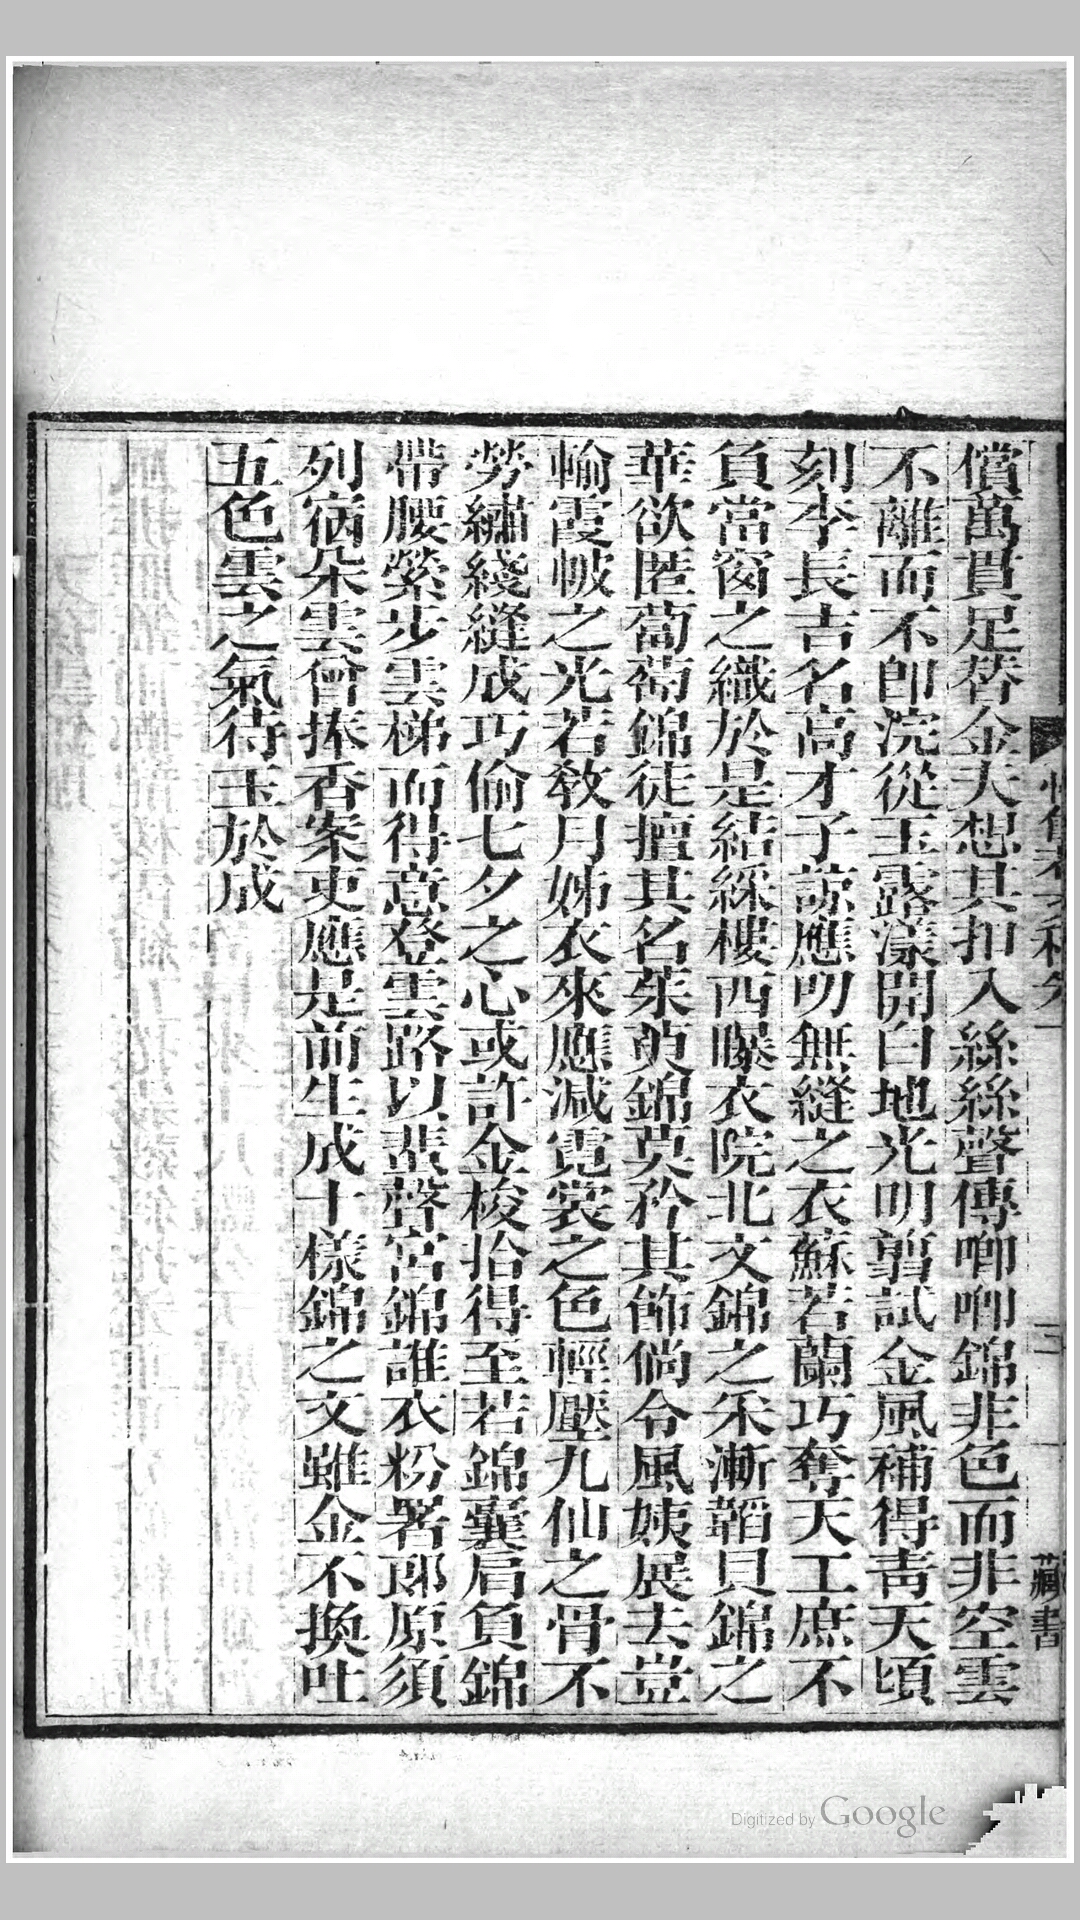 償萬貫足替金夫想其扣入絲絲聲傳啣啣錦非色而非空雲
不離而不卽浣從玉露漾開白地光明翦試金風補得靑天頃
刻李長吉名高才子諒應叨無縫之衣蘇若蘭巧奪天工庶不
負當窗之織於是結綵樓西曝衣院北文錦之釆漸韜貝錦之
華欲匿蔔萄錦徒擅其名茱萸錦莫矜其飾倘令風姨展去豈
輸霞帔之光若敎月姊衣來應減霓裳之色輕壓九仙之骨不
勞繡綫縫成巧偷七夕之心或許金梭拾得至若錦囊肩負錦
帶腰縈步雲梯而得意登雲路以蜚聲宮錦誰衣粉署郎原須
列宿朵雲曾捧香案吏應是前生成十樣錦之文雖金不換吐
五色雲之氣待玉於成
藏書
Digitized by Google